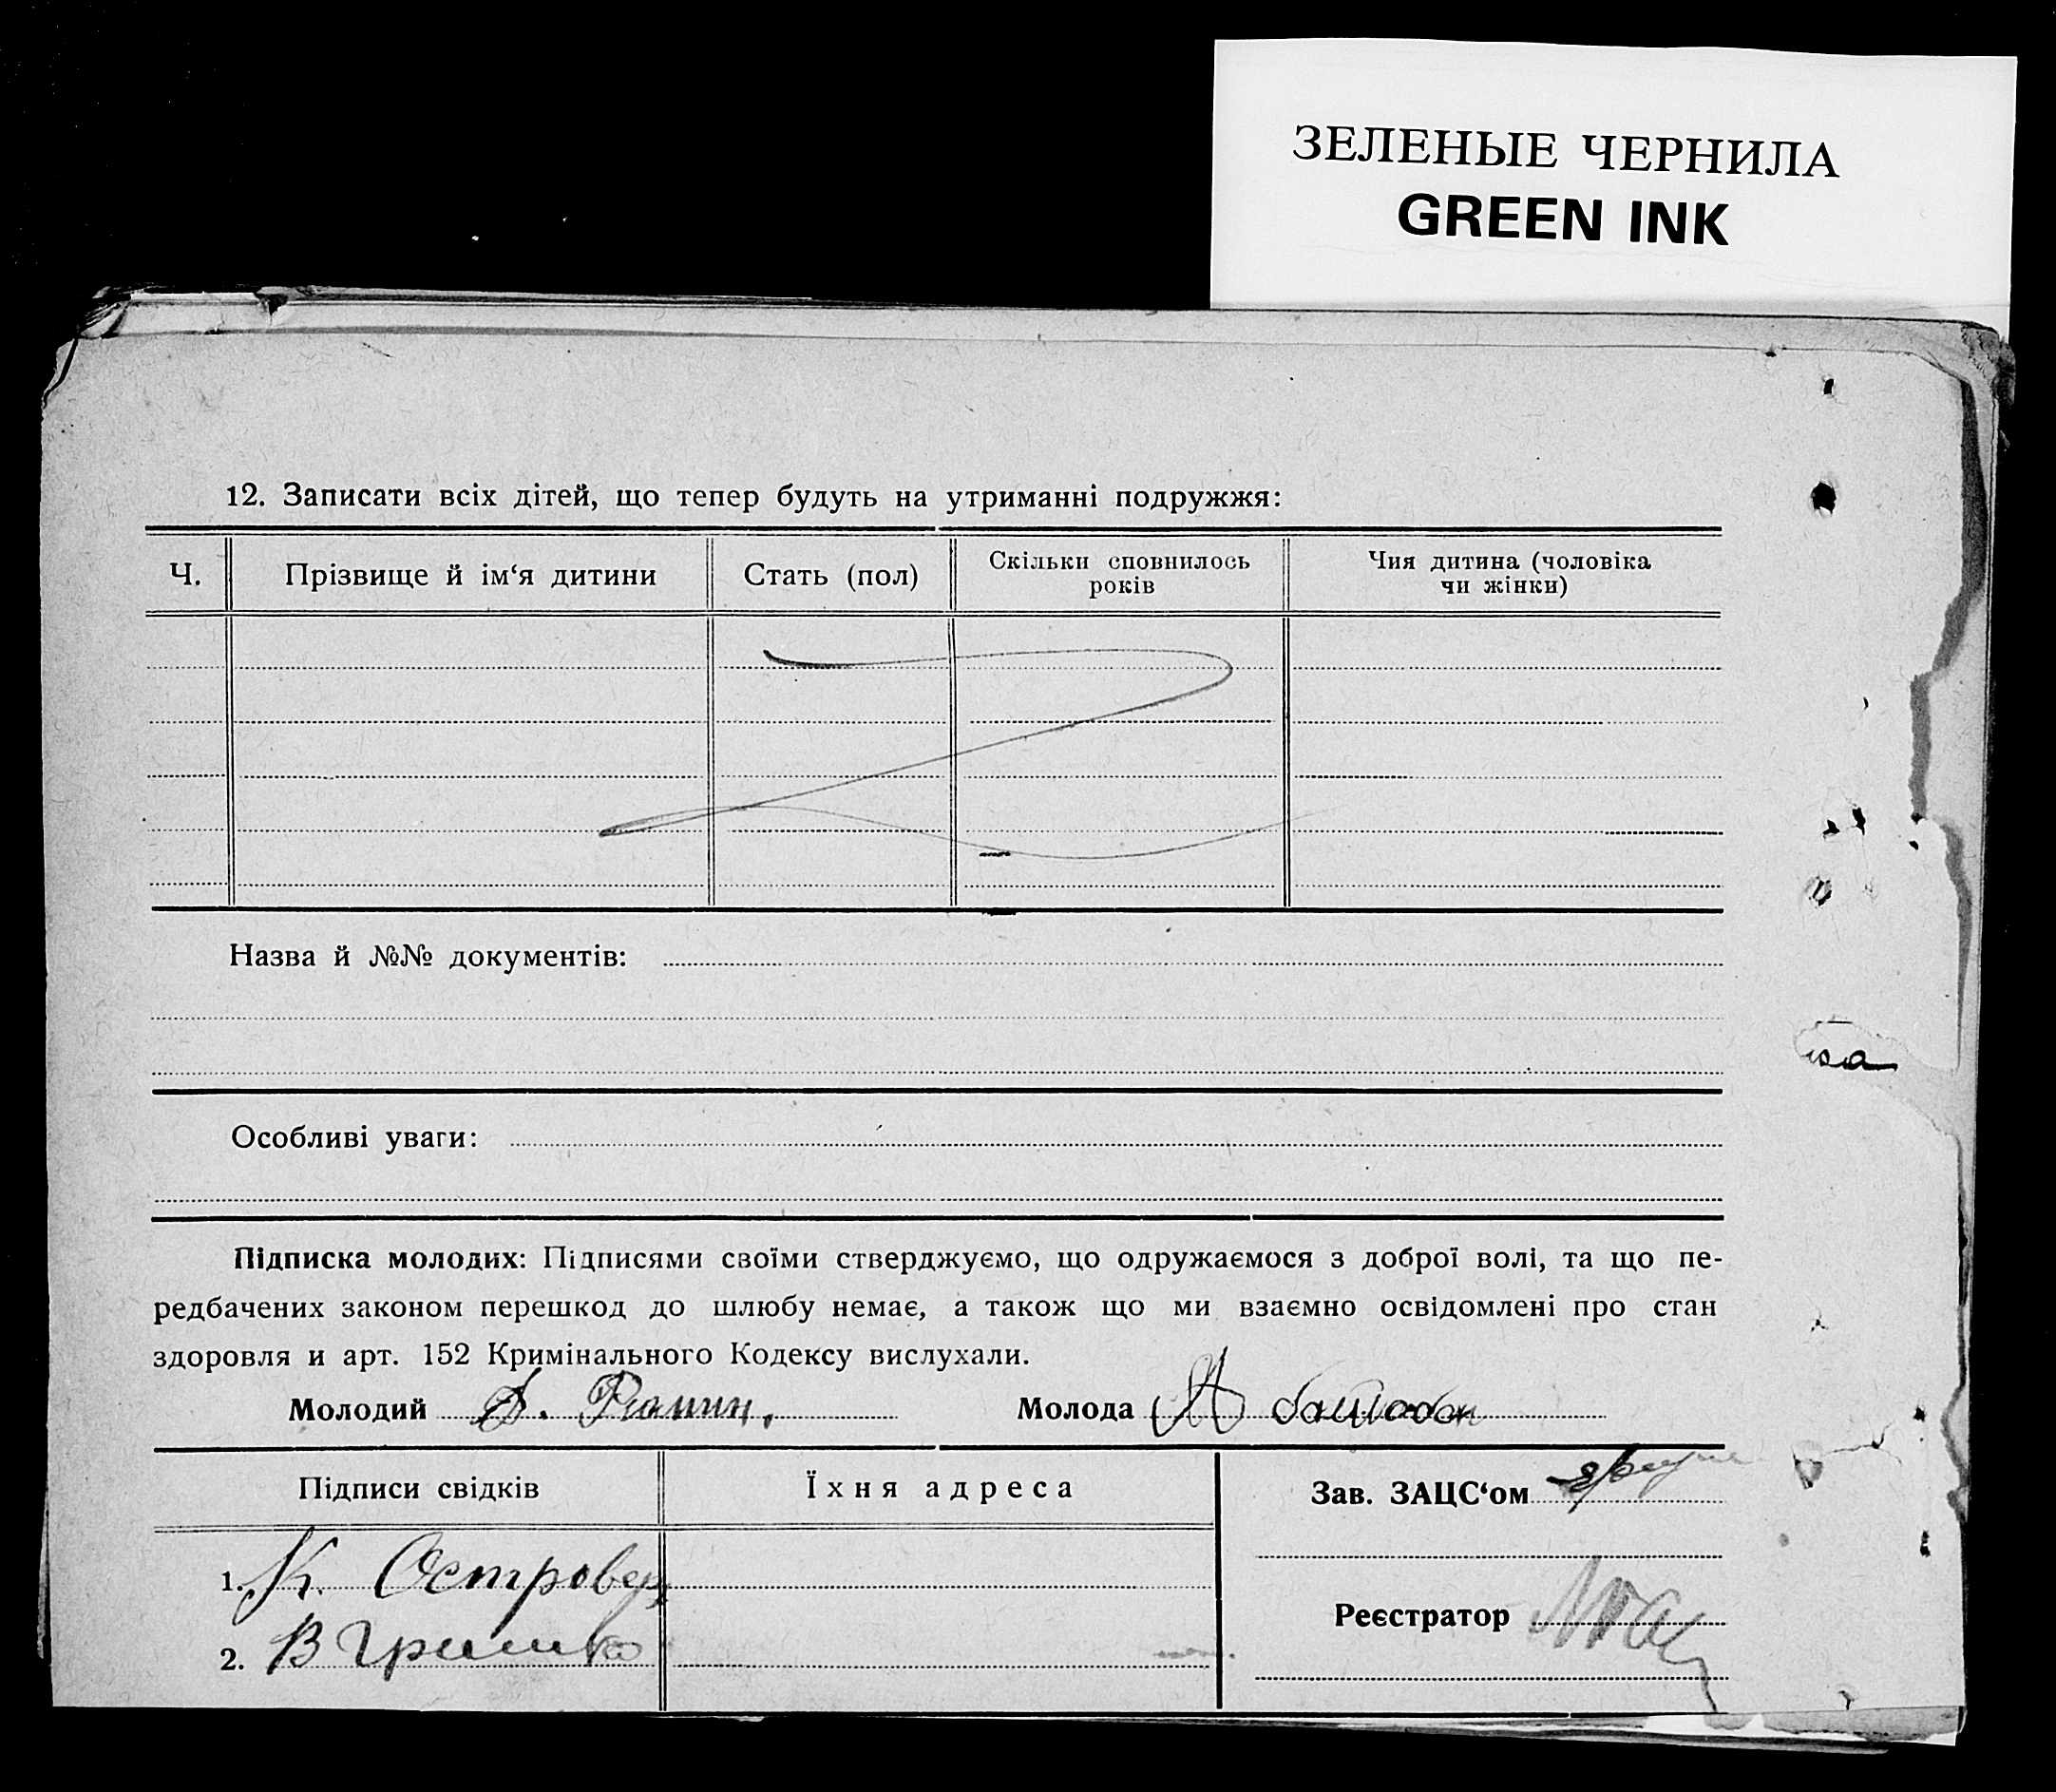 ЗЕЛЕНЫЕ ЧЕРНИЛА
GREEN INK
12. Записати всіх дітей, що тепер будуть на утриманні подружжя:
Ч. Прізвище й ім‘я дитини Стать (пол) Скільки сповнилось років Чия дитина (чоловіка чи жінки)
Назва й №№ документів:
Особливі уваги:
Підписка молодих: Підписями своїми стверджуємо, що одружаємося з доброї волі, та що пе-
редбачених законом перешкод до шлюбу немає, а також що ми взаємно освідомлені про стан
здоровля и арт. 152 Кримінального Кодексу вислухали.
Молодий Молода
Підписи свідків Їхня адреса Зав. ЗАЦС‘ом
1. К. Островер
Реєстратор
2. В Гришко